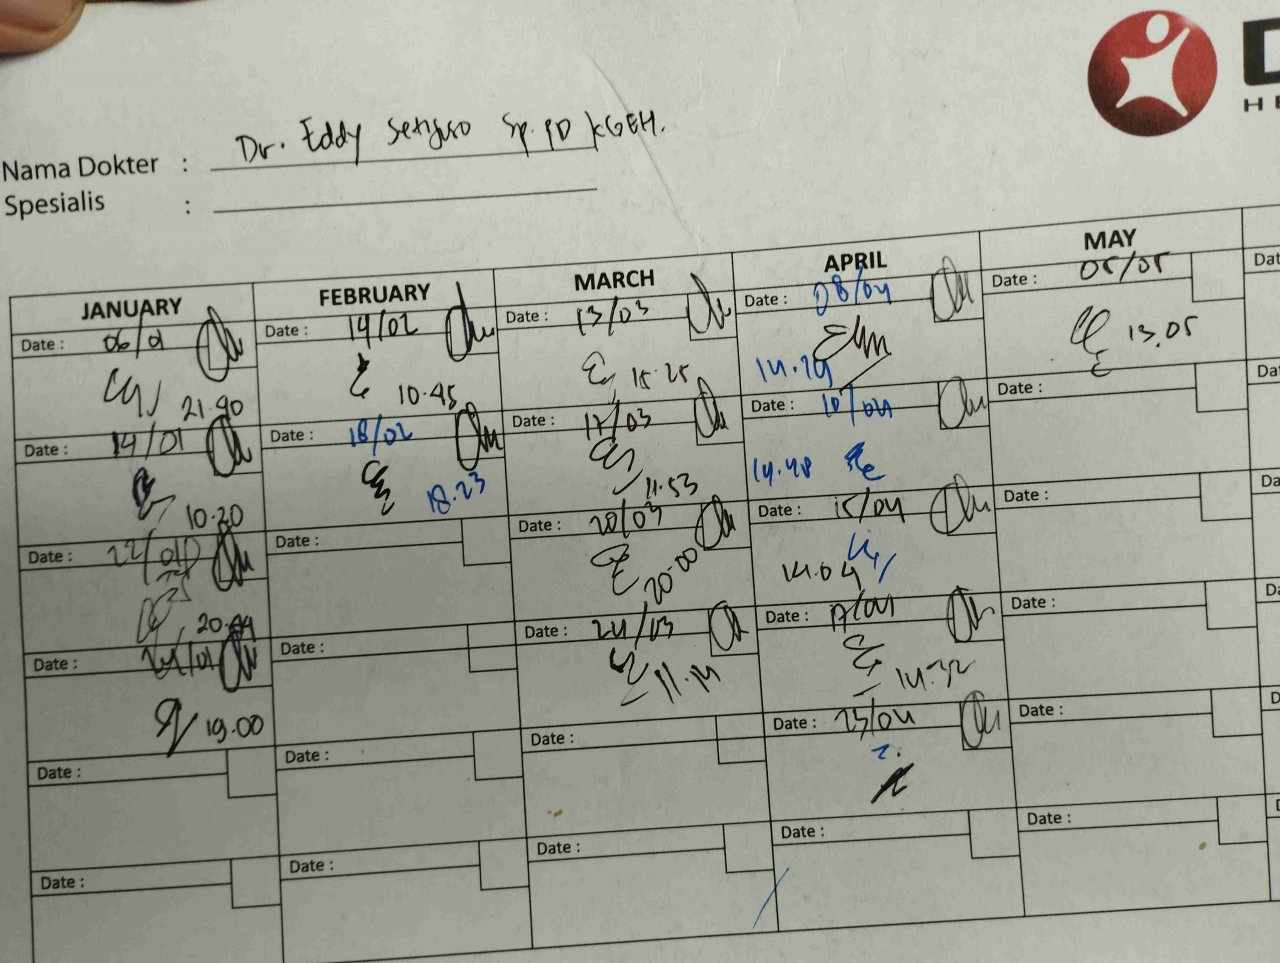 Nama Dokter : Dr. Eddy Setijoso Sp. PD KGEH.
Spesialis :
JANUARY FEBRUARY MARCH APRIL MAY
Date : 06/01 Date : 14/02 Date : 13/03 Date : 08/04 Date : 05/05 Dat
21.40 10.45 15.25 14.24 13.05
Date : 14/01 Date : 18/02 Date : 17/03 Date : 10/04 Date : Da
10.20 18.23 11.53 14.48
Date : 22/01 Date : Date : 20/03 Date : 15/04 Date : Da
20.00 14.04
Date : Date : Date : 24/03 Date : 17/04 Date : D
19.00 11.14 14.32
Date : Date : Date : Date : 23/04 Date : D
Date : Date : Date : Date : Date : D